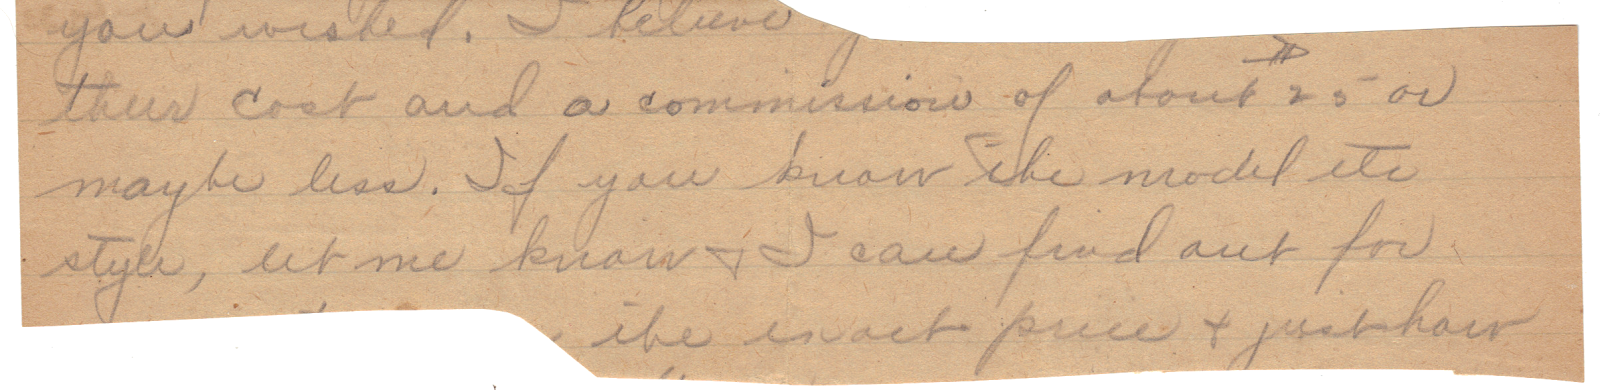 you wished. I believe
their cost and a commission of about $25 or
maybe less. If you know the model etc
style, let me know + I can find out for
the exact price + just how